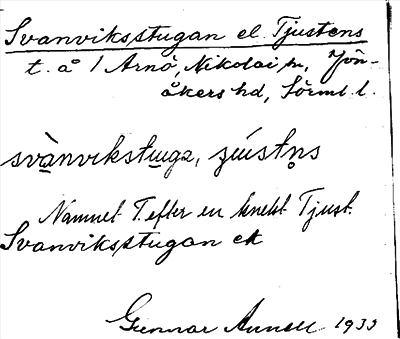 Svanviksstugan el. Tjustens
t. å / Arnö, Nikolai sn, Jön-
åkers hd, Sörml. l.
svànvikstuga, ɟúistn̥s
Namnet T. efter en knekt Tjust.
Svanviksstugan ek
Gunnar 1933